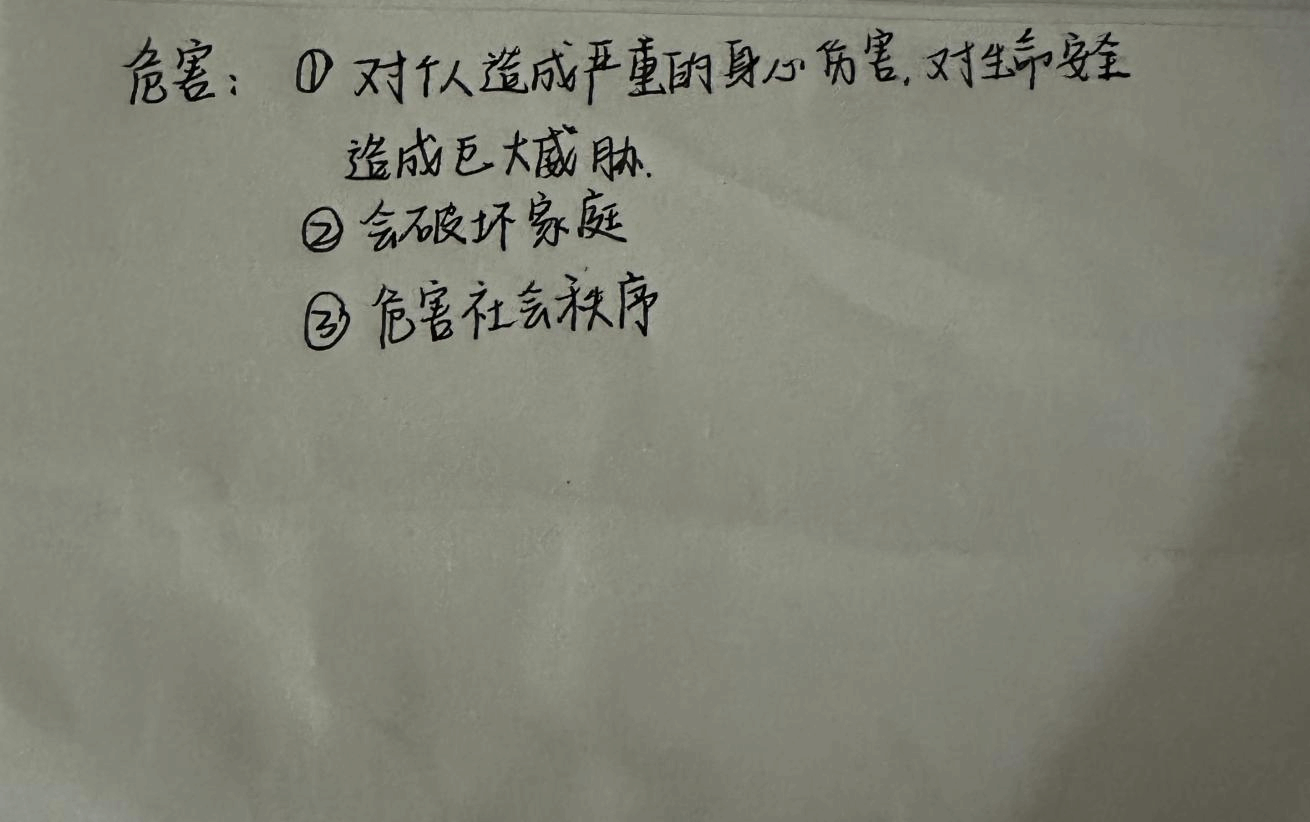 危害：① 对个人造成严重的身心伤害，对生命安全
造成巨大威胁.
② 会破坏家庭
③ 危害社会秩序